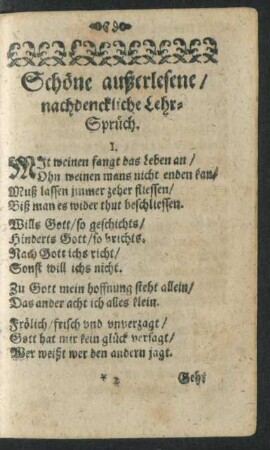 Schöne außerlesene/
nachdenckliche Lehr-
Sprüch.
1.
MIt weinen fangt das Leben an/
Ohn weinen mans nicht enden kan/
Muß lassen immer zeher fliessen/
Biß man es wider thut beschliessen.
Wills Gott/ so geschichts/
Hinderts Gott/ so brichts.
Nach Gott ich richt/
Sonst will ich nicht.
Zu Gott mein hoffnung steht allein/
Das ander acht ich alles klein.
Frölich/ frisch vnd vnverzagt/
Gott hat mir kein glück versagt/
Wer weißt wer den andern jagt.
* 2 Geht